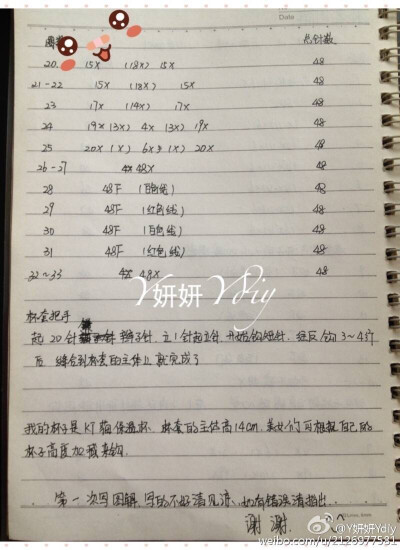 Date
圈数 总针数
20. 15X (18X) 15X 48
21-22 15X (18X) 15X 48
23 17X (14X) 17X 48
24 19X (3X) 4X (3X) 19X 48
25 20X (X) 6X (X) 20X 48
26-27 48X 48
28 48F (白色线) 48
29 48F (红色线) 48
30 48F (白色线) 48
31 48F (红色线) 48
32~33 48X 48
Y妍妍Ydiy
杯套把手
起20针 辫子针, 立1针起立针, 开始钩短针, 往反钩3~4行
后 缝合到杯套的主体上就完成了
我的杯子是KT猫保温杯. 杯套的主体高14cm, 美女们可根据自己的
杯子高度加减来钩.
第一次写图解, 写的不好请见谅, 如有错误请指出.
谢谢.
@Y妍妍Ydiy
weibo.com/u/2126977531